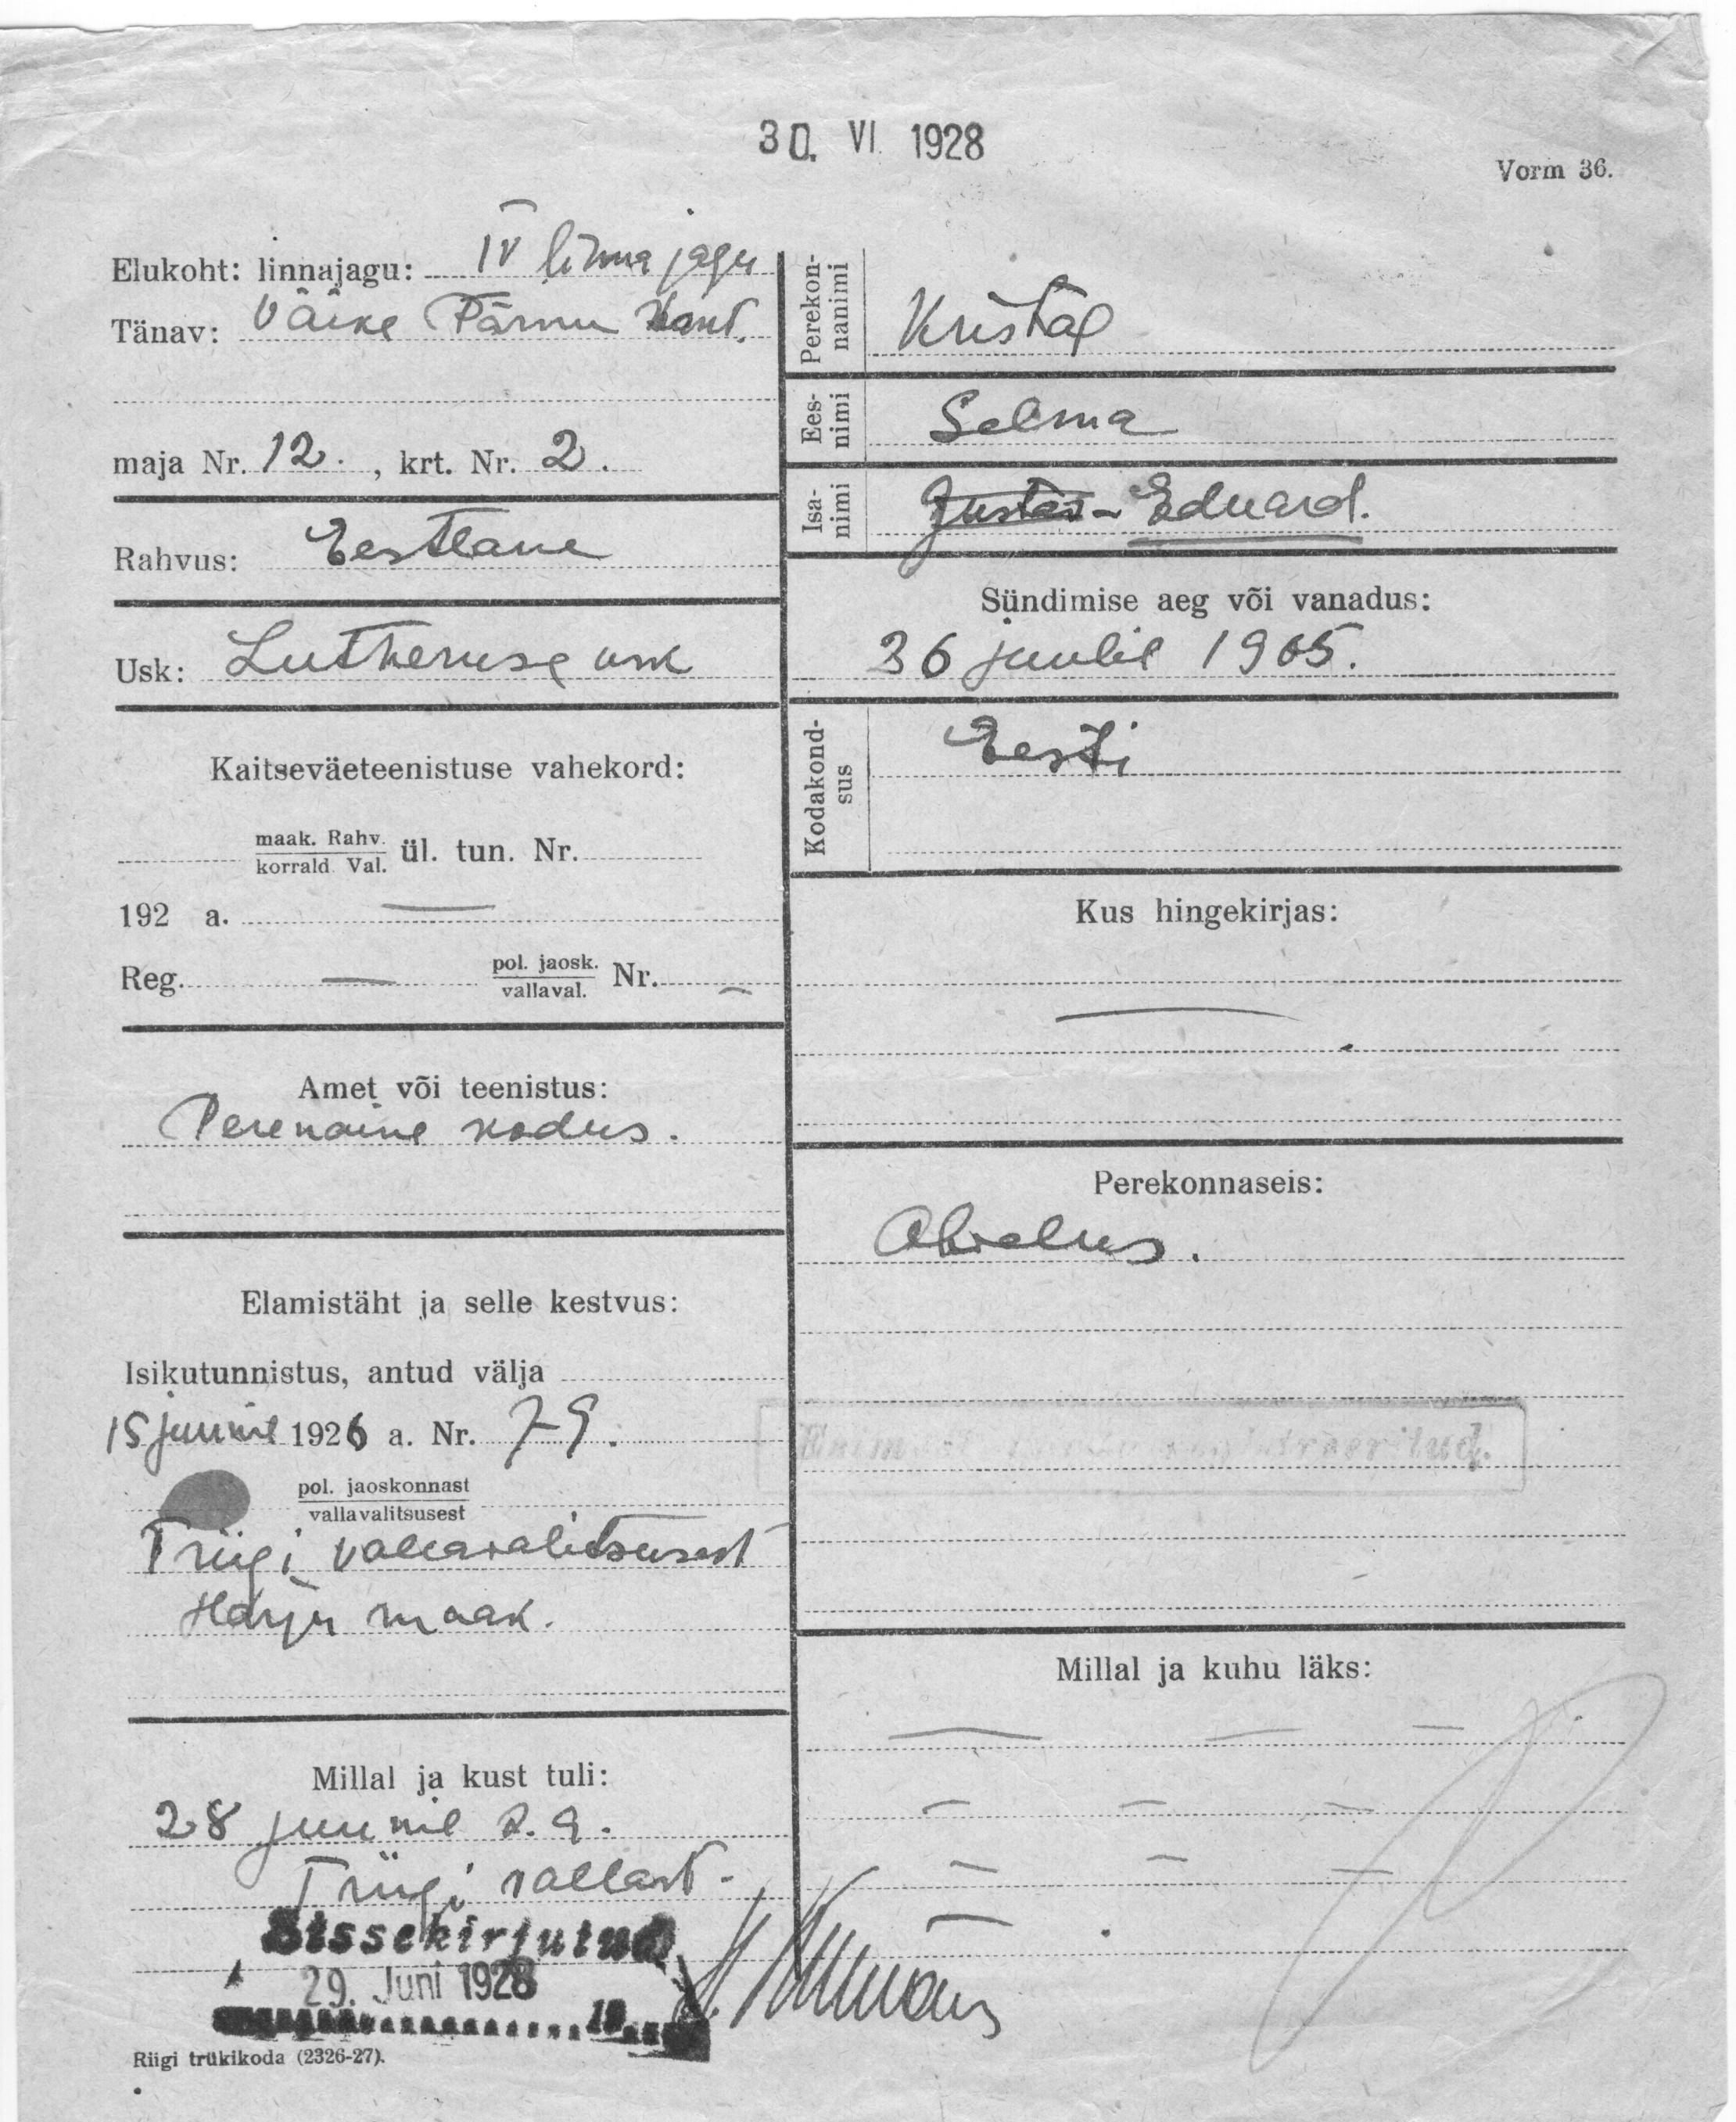 30. VI 1928
Vorm 36.
Elukoht: linnajagu: IV linna jagu
Tänav: Väike Pärnu mant.
maja Nr. 12. , krt. Nr. 2.
Rahvus: Eestlane
Usk: Lutheruse usk
Kaitseväeteenistuse vahekord:
maak. Rahv.
korrald Val. ül. tun. Nr.
192 a. —
Reg. — pol. jaosk. Nr. —
vallaval.
Amet või teenistus:
Perenaine kodus.
Elamistäht ja selle kestvus:
Isikutunnistus, antud välja
15 juunil 1926 a. Nr. 79.
pol. jaoskonnast
vallavalitsusest
Triigi vallavalitsusest
Harju maak.
Millal ja kust tuli:
28 juunil s. a.
Triigi vallast -
Sissekirjutud
29. Juni 1928
19
Riigi trükikoda (2326-27).
Perekon-
nanimi
Kristal
Ees-
nimi
Selma
Isa-
nimi
Gustav - Eduard.
Sündimise aeg või vanadus:
26 juulil 1905.
Kodakond-
sus
Eesti
Kus hingekirjas:
—
Perekonnaseis:
Abielus.
Millal ja kuhu läks:
— — —
— — —
— — —
—